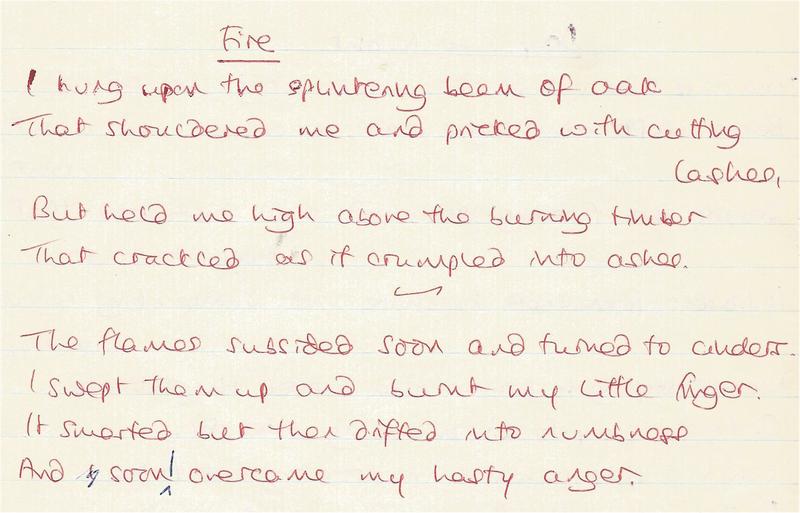 Fire
I hung upon the splintering beam of oak
That shouldered me and pricked with cutting
lashes,
But held me high above the burning timber
That crackled as it crumpled into ashes.
The flames subsided soon and turned to cinders.
I swept them up and burnt my little finger.
It smarted but then drifted into numbness
And soon I overcame my hasty anger.